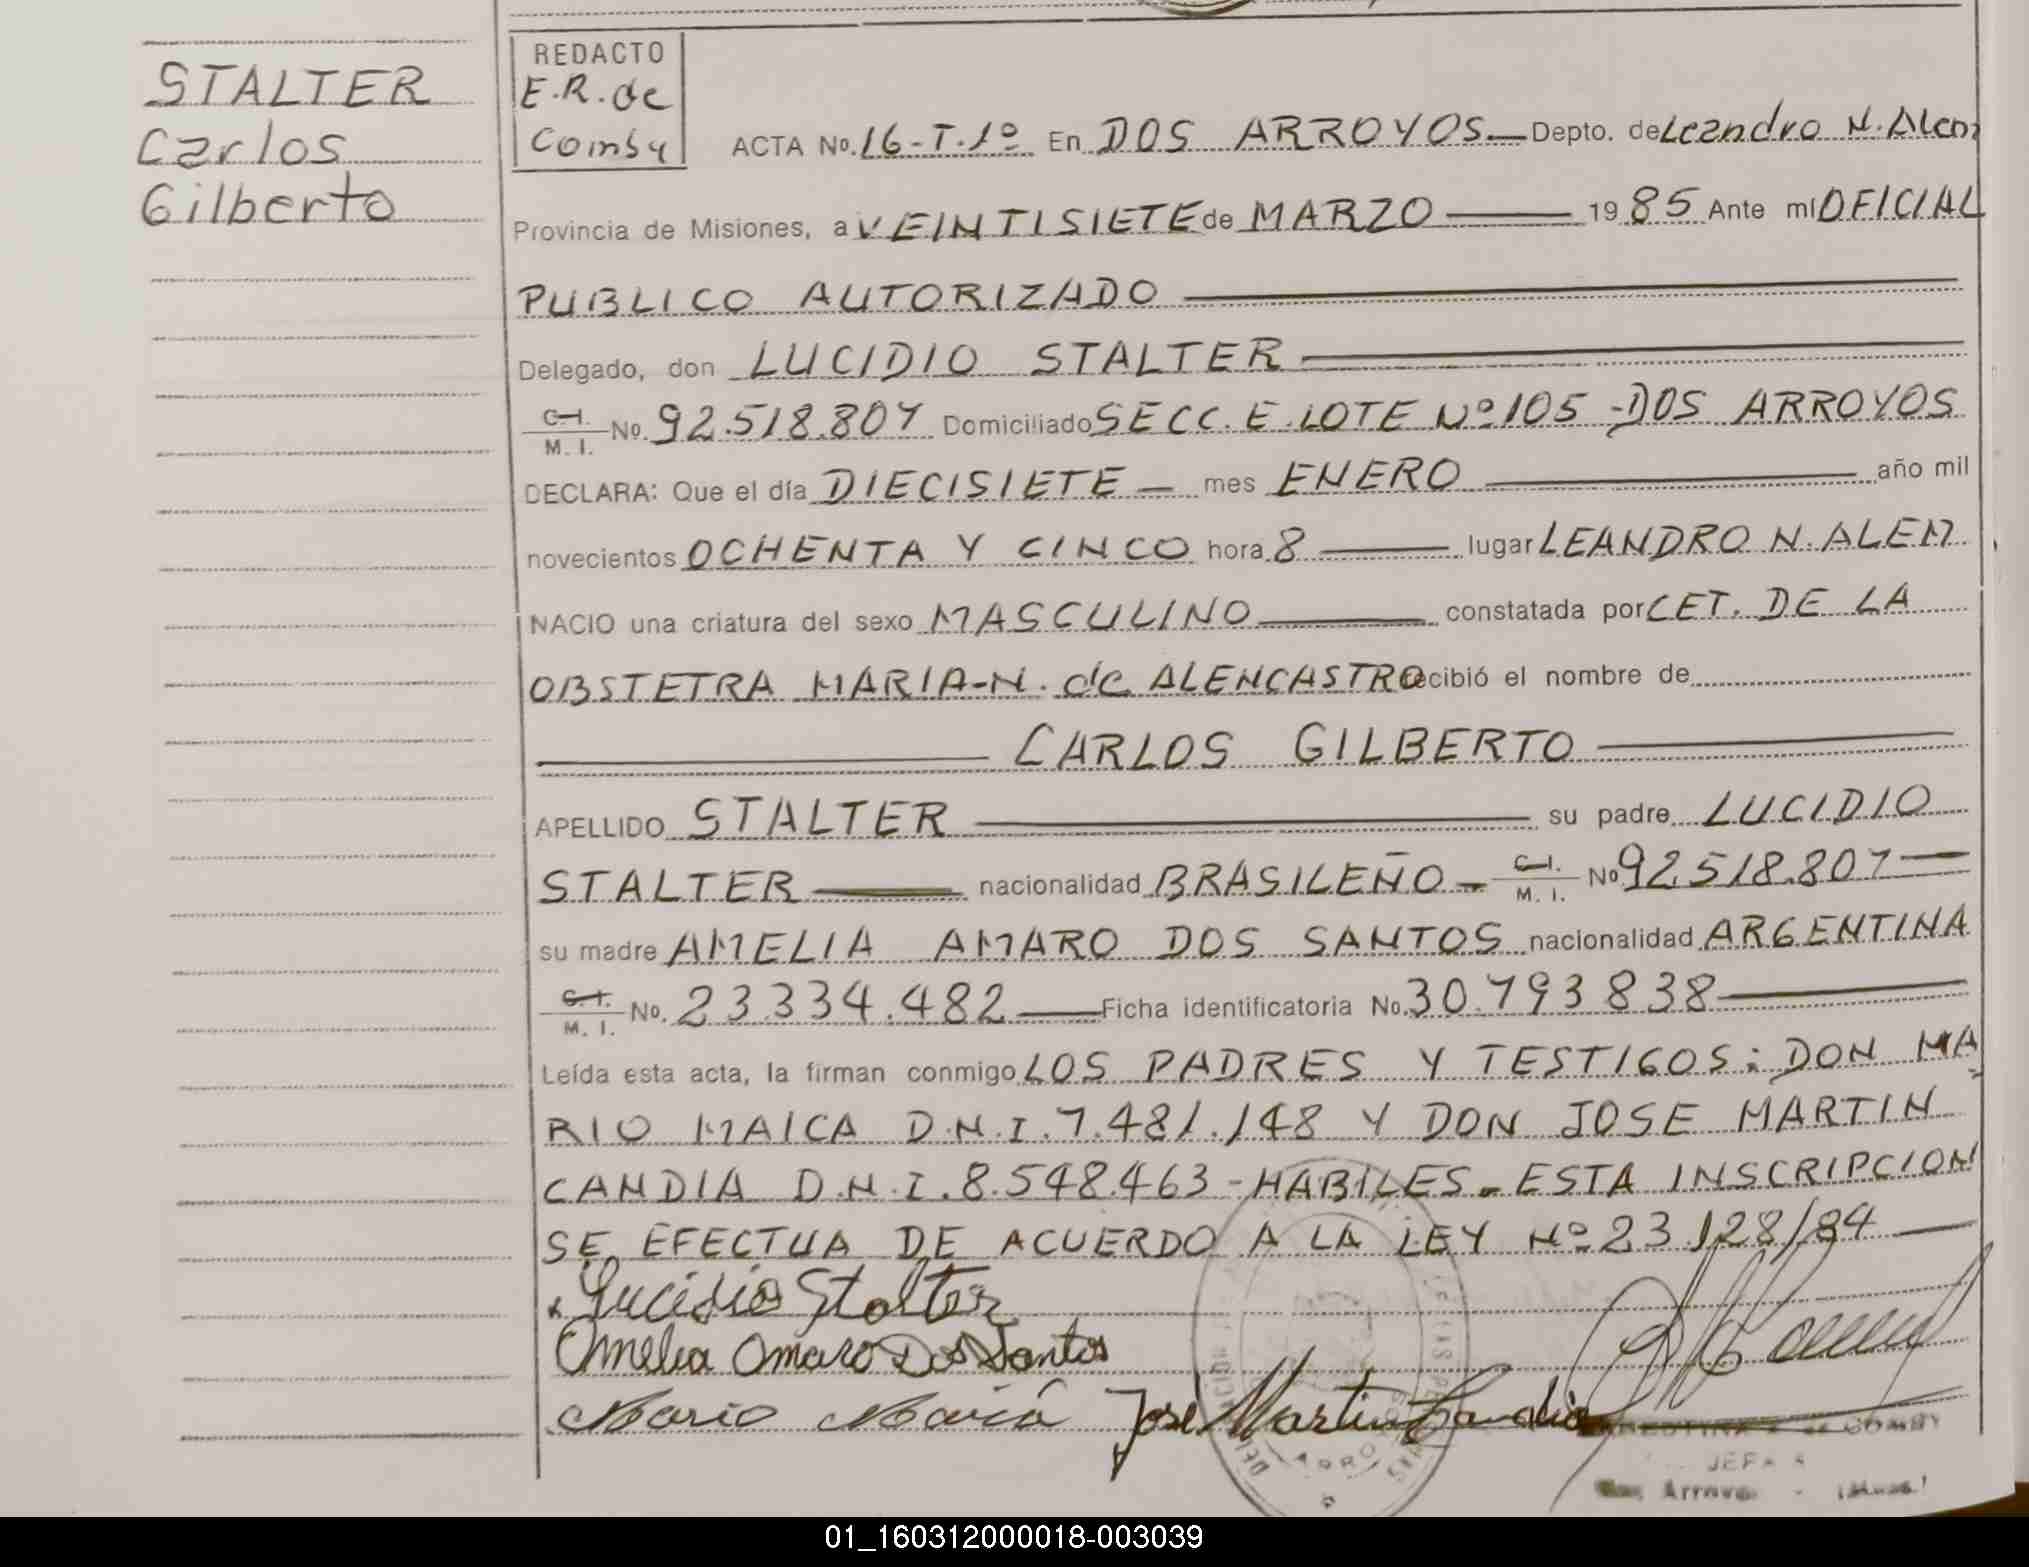 STALTER
Carlos
Gilberto
REDACTO
E.R. de
Comby
ACTA No. 16-T.1º En DOS ARROYOS Depto. de Leandro N. Alem
Provincia de Misiones, a VEINTISIETE de MARZO 1985 Ante mí OFICIAL
PUBLICO AUTORIZADO
Delegado, don LUCIDIO STALTER
C.I. M.I. No. 92.518.807 Domiciliado SECC. E. LOTE Nº 105 - DOS ARROYOS
DECLARA: Que el día DIECISIETE mes ENERO año mil
novecientos OCHENTA Y CINCO hora 8 lugar LEANDRO N. ALEM
NACIO una criatura del sexo MASCULINO constatada por CET. DE LA
OBSTETRA MARIA-N. de ALENCASTRO recibió el nombre de
CARLOS GILBERTO
APELLIDO STALTER su padre LUCIDIO
STALTER nacionalidad BRASILEÑO C.I. M.I. No 92.518.807
su madre AMELIA AMARO DOS SANTOS nacionalidad ARGENTINA
C.I. M.I. No. 23.334.482 Ficha identificatoria No. 30.793.838
Leída esta acta, la firman conmigo LOS PADRES Y TESTIGOS: DON MA
RIO MAICA D.N.I. 7.481.148 Y DON JOSE MARTIN
CANDIA D.N.I. 8.548.463 - HABILES - ESTA INSCRIPCION
SE EFECTUA DE ACUERDO A LA LEY Nº 23.128/84
Lucidio Stalter
Amelia Amaro Dos Santos
Mario Maica José Martin Candia
de COMBY
JEFA
Dos Arroyos
01_160312000018-003039